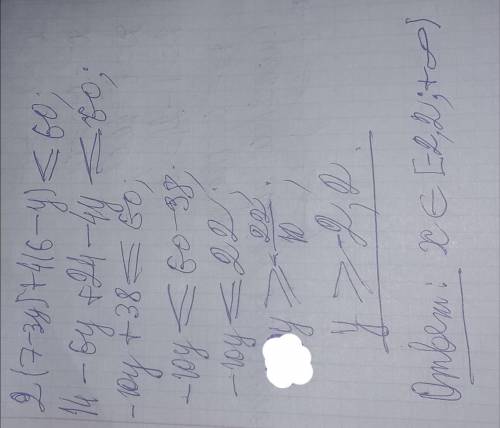 2(7-3y)+4(6-y) ≤ 60;
14-6y+24-4y ≤ 60;
-10y+38 ≤ 60;
-10y ≤ 60-38;
-10y ≤ 22;
y ≥ -22/10;
y ≥ -2,2.
Ответ: x ∈ [-2,2;+∞)